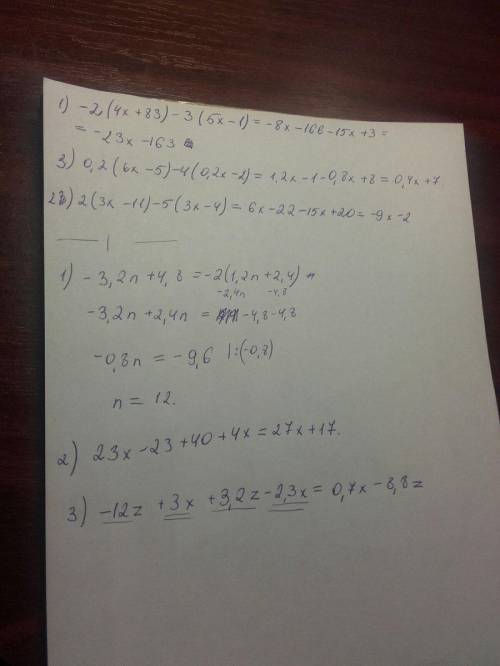 1) -2(4x+83)-3(5x-1)=-8x-166-15x+3=
=-23x-163
3) 0,2(6x-5)-4(0,2x-2)=1,2x-1-0,8x+8=0,4x+7.
2) 2(3x-11)-5(3x-4)=6x-22-15x+20=-9x-2
1) -3,2n+4,8=-2(1,2n+2,4)
-2,4n -4,8
-3,2n+2,4n= -4,8-4,8
-0,8n=-9,6 |:(-0,8)
n=12.
2) 23x-23+40+4x=27x+17.
3) -12z+3x+3,2z-2,3x=0,7x-8,8z